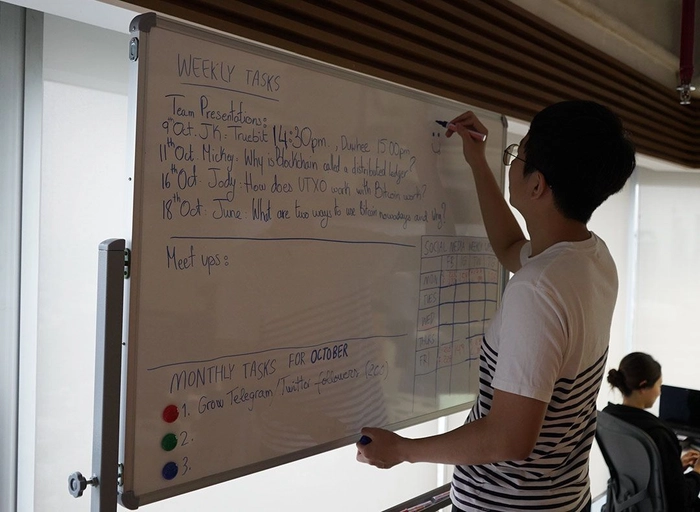 WEEKLY TASKS
Team Presentations:
9th Oct. JK: Truebit 14:30pm., Dunhee 15:00pm
11th Oct. Mickey: Why is blockchain called a distributed ledger?
16th Oct. Jody: How does UTXO work with Bitcoin worth?
18th Oct. June: What are two ways to use Bitcoin nowadays and why?
Meet ups:
SOCIAL MEDIA WEEKLY
MON
TUES
WED
FRI
MONTHLY TASKS FOR OCTOBER
1. Grow Telegram/Twitter followers
2.
3.